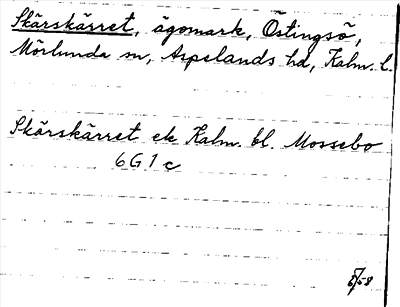 Skärskärret, ägomark, Östingsö,
Mörlunda sn, Aspelands hd, Kalm. l.
Skärskärret ek Kalm. bl. Mossebo
6 G 1 c